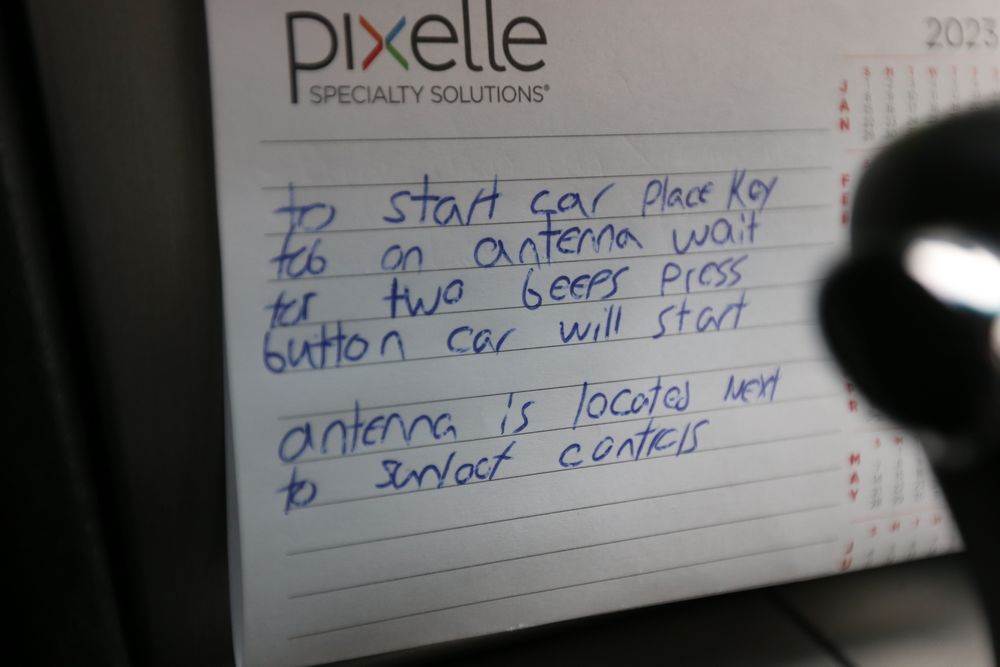 pixelle
SPECIALTY SOLUTIONS®
2023
to start car Place Key
fob on antenna wait
for two beeps Press
button car will start
antenna is located Next
to sunroof controls
JAN
FEB
MAY